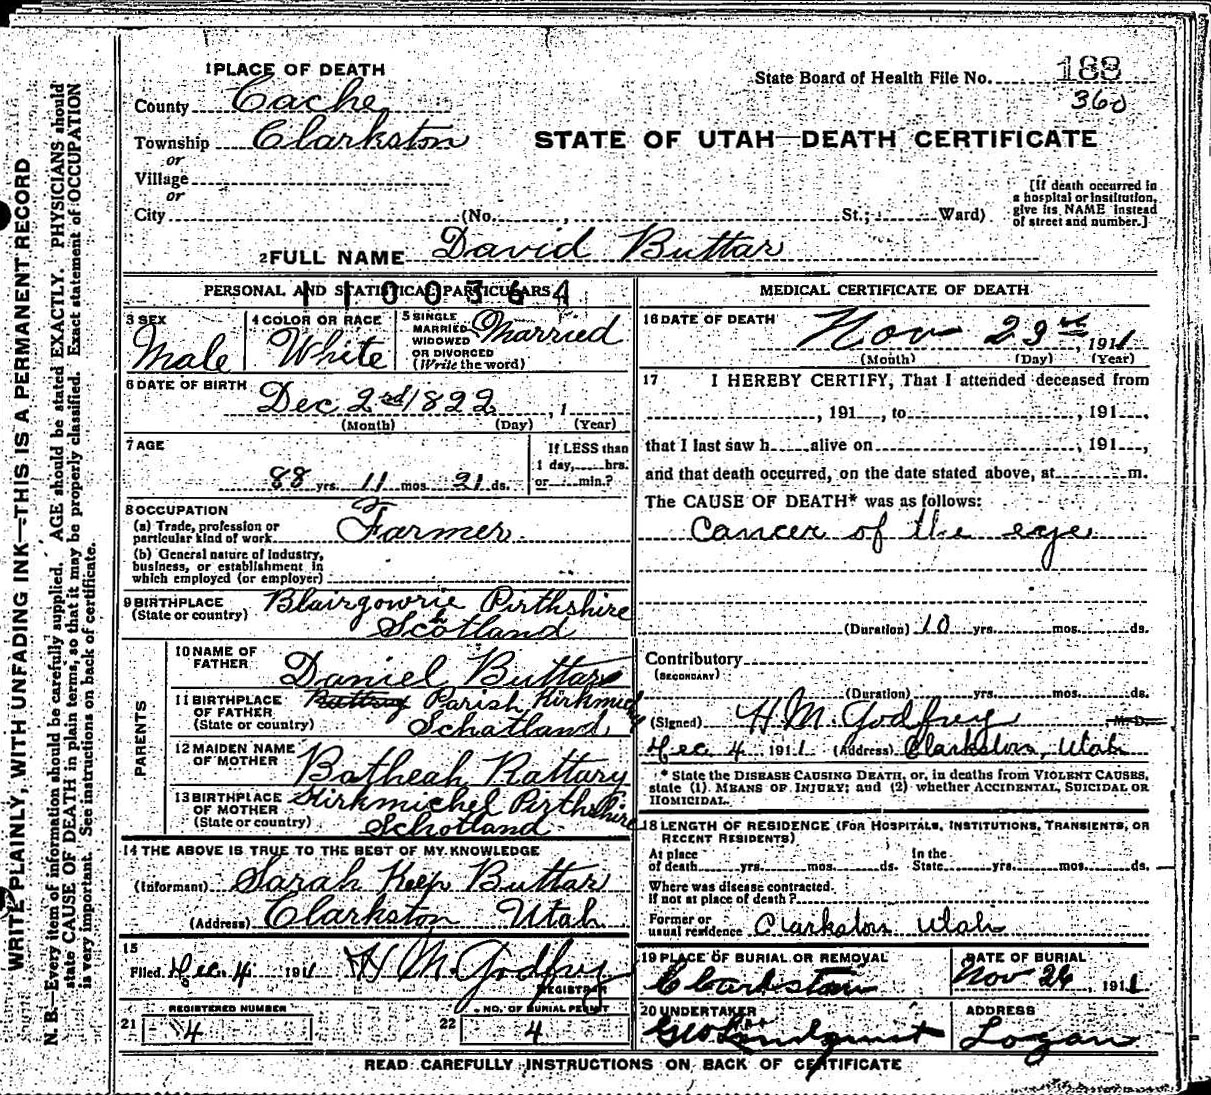 WRITE PLAINLY, WITH UNFADING INK—THIS IS A PERMANENT RECORD
N. B.—Every item of information should be carefully supplied. AGE should be stated EXACTLY. PHYSICIANS should
state CAUSE OF DEATH in plain terms, so that it may be properly classified. Exact statement of OCCUPATION
is very important. See instructions on back of certificate.
1 PLACE OF DEATH
State Board of Health File No. 188
360
County Cache
Township Clarkston
STATE OF UTAH—DEATH CERTIFICATE
or
Village
or
City (No. , St.; Ward)
[If death occurred in
a hospital or institution,
give its NAME instead
of street and number.]
2 FULL NAME David Buttar
PERSONAL AND STATISTICAL PARTICULARS
1100364
3 SEX
Male
4 COLOR OR RACE
White
5 SINGLE
MARRIED
WIDOWED
OR DIVORCED
(Write the word)
Married
6 DATE OF BIRTH
Dec 2nd 1822 , 1
(Month) (Day) (Year)
7 AGE
88 yrs. 11 mos. 21 ds.
If LESS than
1 day, hrs.
or min.?
8 OCCUPATION
(a) Trade, profession or
particular kind of work Farmer
(b) General nature of Industry,
business, or establishment in
which employed (or employer)
9 BIRTHPLACE
(State or country)
Blairgowrie Pirthshire
Scotland
PARENTS
10 NAME OF
FATHER
Daniel Buttar
11 BIRTHPLACE
OF FATHER
(State or country)
Rattray Parish Kirkmich
Schotland
12 MAIDEN NAME
OF MOTHER
Batheah Rattary
13 BIRTHPLACE
OF MOTHER
(State or country)
Kirkmichel Perthshire
Schotland
14 THE ABOVE IS TRUE TO THE BEST OF MY KNOWLEDGE
(Informant) Sarah Keep Buttar
(Address) Clarkston Utah
15
Filed Dec 4 1911 H M Godfrey
REGISTRAR
REGISTERED NUMBER
21 4
NO. OF BURIAL PERMIT
22 4
MEDICAL CERTIFICATE OF DEATH
16 DATE OF DEATH
Nov 23rd , 1911
(Month) (Day) (Year)
17 I HEREBY CERTIFY, That I attended deceased from
, 191 , to , 191 ,
that I last saw h alive on , 191 ,
and that death occurred, on the date stated above, at m.
The CAUSE OF DEATH* was as follows:
Cancer of the eye
(Duration) 10 yrs. mos. ds.
Contributory
(SECONDARY)
(Duration) yrs. mos. ds.
(Signed) H M Godfrey M. D.
Dec 4 1911 (Address) Clarkston, Utah
* State the DISEASE CAUSING DEATH, or, in deaths from VIOLENT CAUSES,
state (1) MEANS OF INJURY; and (2) whether ACCIDENTAL, SUICIDAL OR
HOMICIDAL.
18 LENGTH OF RESIDENCE (FOR HOSPITALS, INSTITUTIONS, TRANSIENTS, OR
RECENT RESIDENTS)
At place In the
of death yrs. mos. ds. State yrs. mos. ds.
Where was disease contracted.
if not at place of death?
Former or
usual residence Clarkston Utah
19 PLACE OF BURIAL OR REMOVAL
Clarkston
DATE OF BURIAL
Nov 26 , 1911
20 UNDERTAKER
Geo Lindquist
ADDRESS
Logan
READ CAREFULLY INSTRUCTIONS ON BACK OF CERTIFICATE